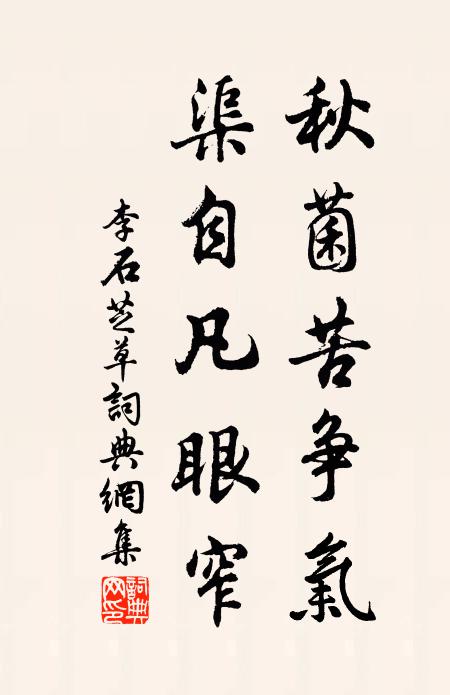 秋菌苦争氣
渠自凡眼窄
李石芝草詞典網集
詞典網印